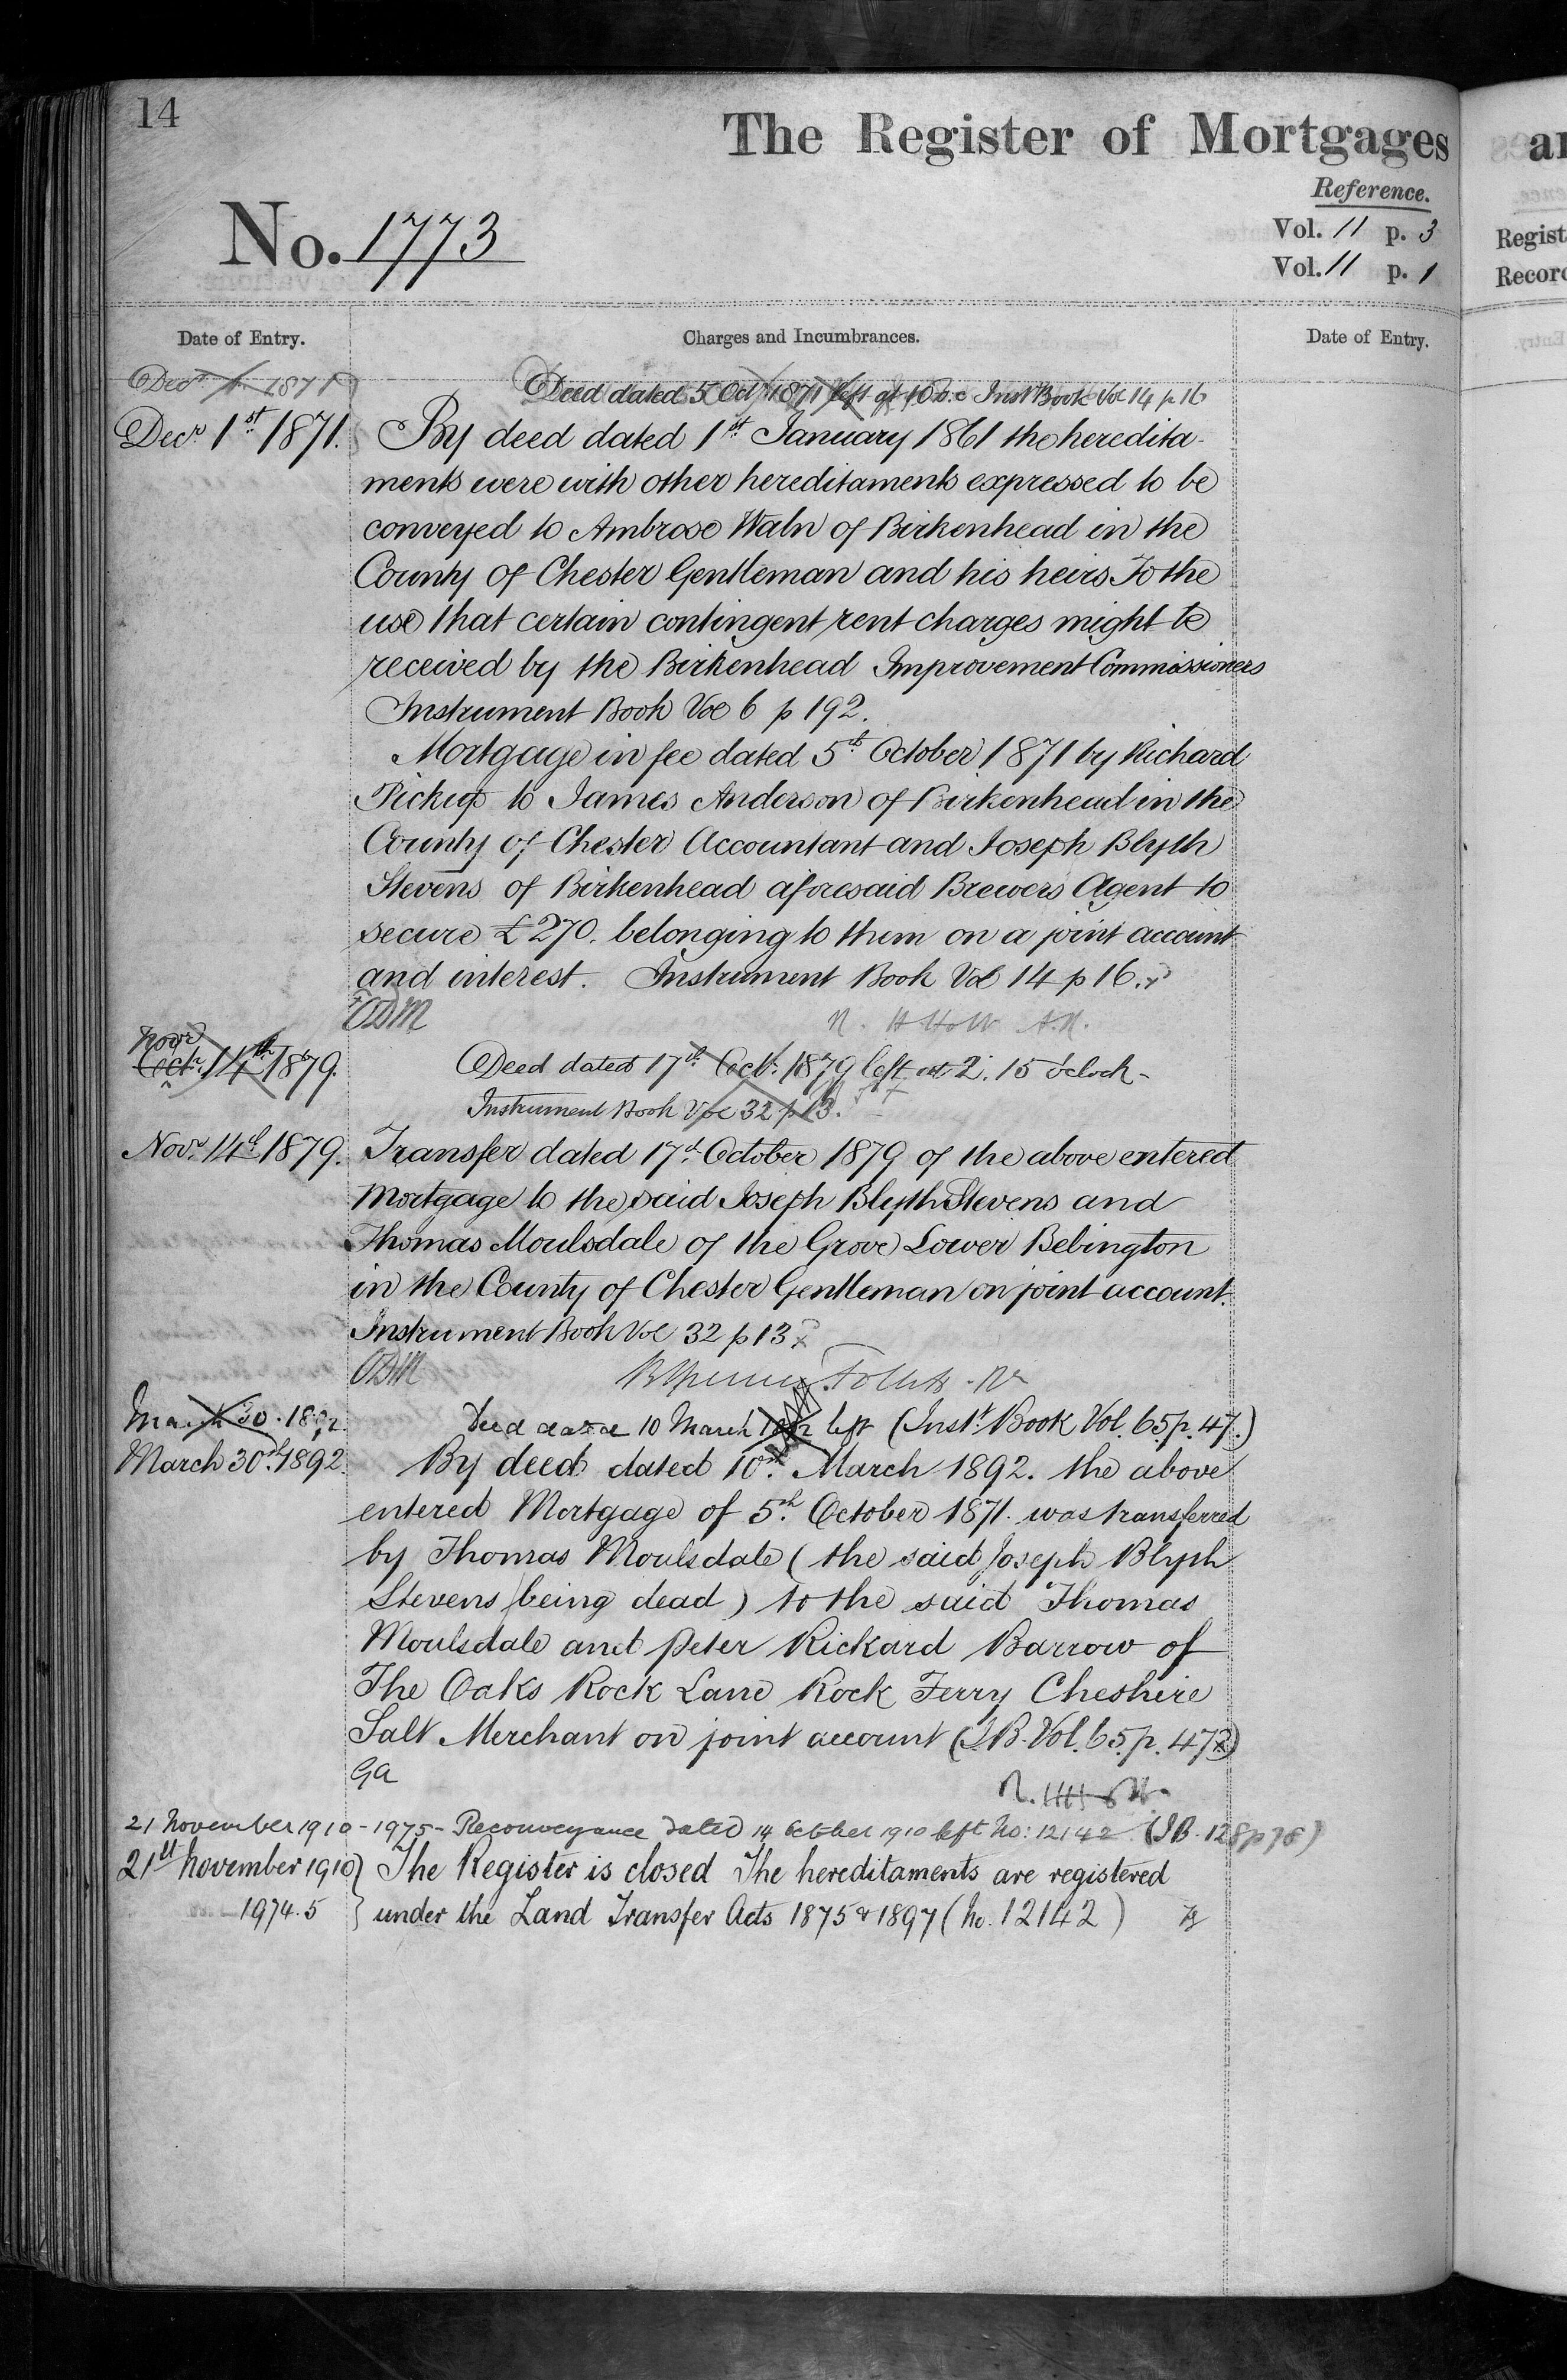 14
The Register of Mortgages
Reference.
No. 1773
Vol. 11 p. 3
Vol. 11 p. 1
Regist
Record
Date of Entry.
Charges and Incumbrances.
Date of Entry.
Decr 1. 1871
Deed dated 5 Oct 1871 left at 10 o.c Inst Book Vol 14 p 16
Decr 1st 1871.
By deed dated 1st January 1861 the heredita-
ments were with other hereditaments expressed to be
conveyed to Ambrose Waln of Birkenhead in the
County of Chester Gentleman and his heirs To the
use that certain contingent rent charges might be
received by the Birkenhead Improvement Commissioners
Instrument Book Vol 6 p 192.
Mortgage in fee dated 5th October 1871 by Richard
Pickup to James Anderson of Birkenhead in the
County of Chester Accountant and Joseph Blyth
Stevens of Birkenhead aforesaid Brewers Agent to
secure £270. belonging to them on a joint account
and interest. Instrument Book Vol 14 p 16.
Novr
Oct. 14th 1879.
Deed dated 17th Oct. 1879 left at 2.15 o'clock -
Instrument Book Vol 32 p 13.
Novr. 14th 1879.
Transfer dated 17th October 1879 of the above entered
Mortgage to the said Joseph Blyth Stevens and
Thomas Moulsdale of the Grove Lower Bebington
in the County of Chester Gentleman on joint account.
Instrument Book Vol 32 p 13
March 30. 1892.
Deed dated 10 March 1892 left (Inst. Book Vol. 65 p. 47.)
March 30th 1892.
By deed dated 10th March 1892. the above
entered Mortgage of 5th October 1871. was transferred
by Thomas Moulsdale (the said Joseph Blyth
Stevens being dead) to the said Thomas
Moulsdale and Peter Rickard Barrow of
The Oaks Rock Lane Rock Ferry Cheshire
Salt Merchant on joint account (I.B. Vol. 65. p. 47)
Ga
21 November 1910 - 1975 - Reconveyance dated 14 October 1910 left No: 12142 (I.B. 128 p 76)
21st November 1910
The Register is closed The hereditaments are registered
1974.5
under the Land Transfer Acts 1875 & 1897 (No. 12142)